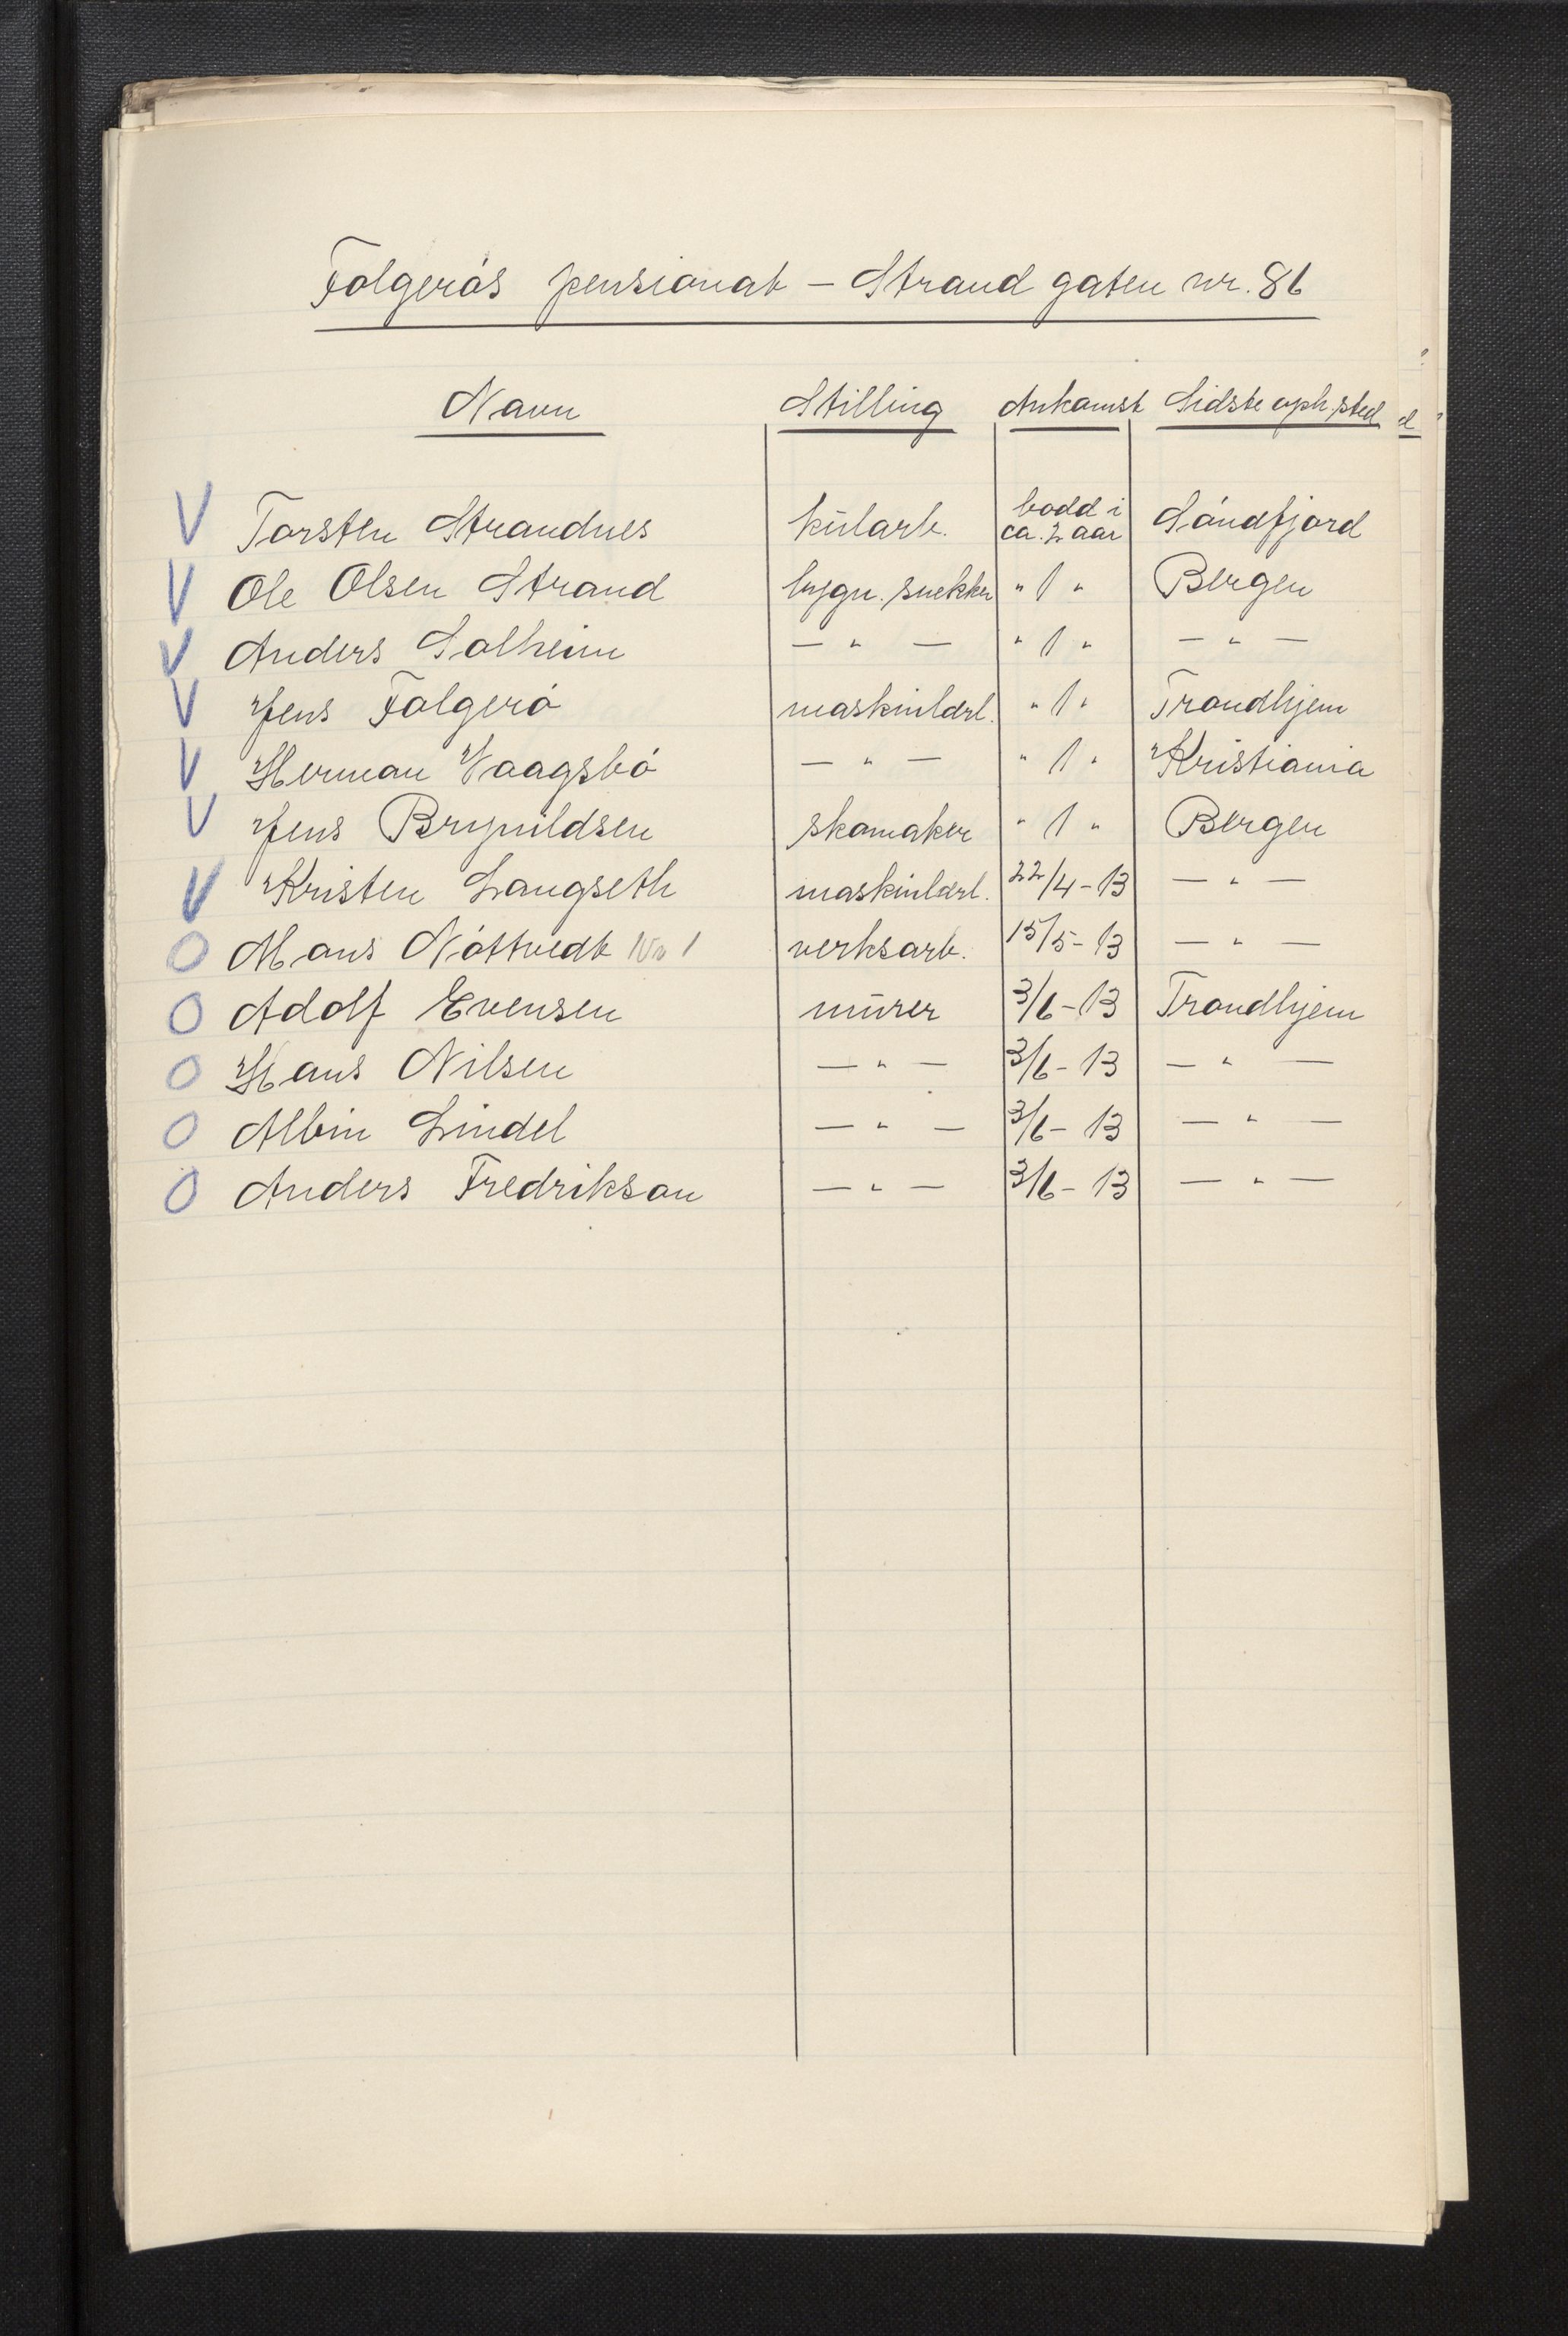 Folgerós pensionat – Strandgaten nr. 86
Navn Stilling Ankomst Sidste oph. sted d
V Torsten Strandnes kūlarb. bodd i ca. 2 aar Sóndfjord
V Ole Olsen Strand bygn. snekker " 1 " Bergen
V Anders Solheim — " — " 1 " — " —
V Jens Folgeró maskinlærl. " 1 " Trondhjem
V Herman Vaagsbó — " — " 1 " Kristiania
V Jens Brynildsen skomaker " 1 " Bergen
V Kristen Langseth maskinlærl. 22/4-13 — " —
O Mons Nóttvedt No 1 verksarb. 15/5-13 — " —
O Adolf Evensen mūrer 3/6-13 Trondhjem
O Hans Nilsen — " — 3/6-13 — " —
O Albin Lindel — " — 3/6-13 — " —
O Anders Fredrikson — " — 3/6-13 — " —